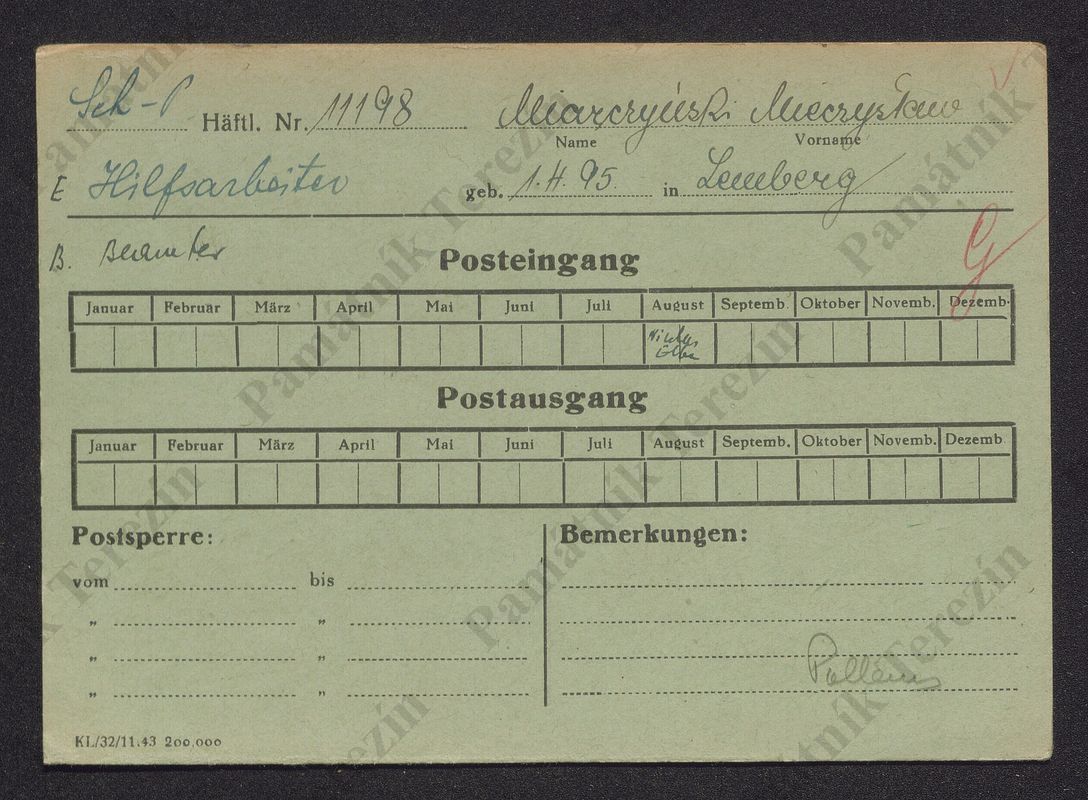 Sch-P Häftl. Nr. 11198 Miarczyński Mieczysław
Name Vorname
E Hilfsarbeiter geb. 1.4.95. in Lemberg
B. Beamter
Posteingang
G
Januar Februar März April Mai Juni Juli August Septemb. Oktober Novemb. Dezemb.
Postausgang
Januar Februar März April Mai Juni Juli August Septemb. Oktober Novemb. Dezemb.
Postsperre: Bemerkungen:
vom bis
„ „
„ „
„ „
KL/32/11.43 200,000
Památník Terezín